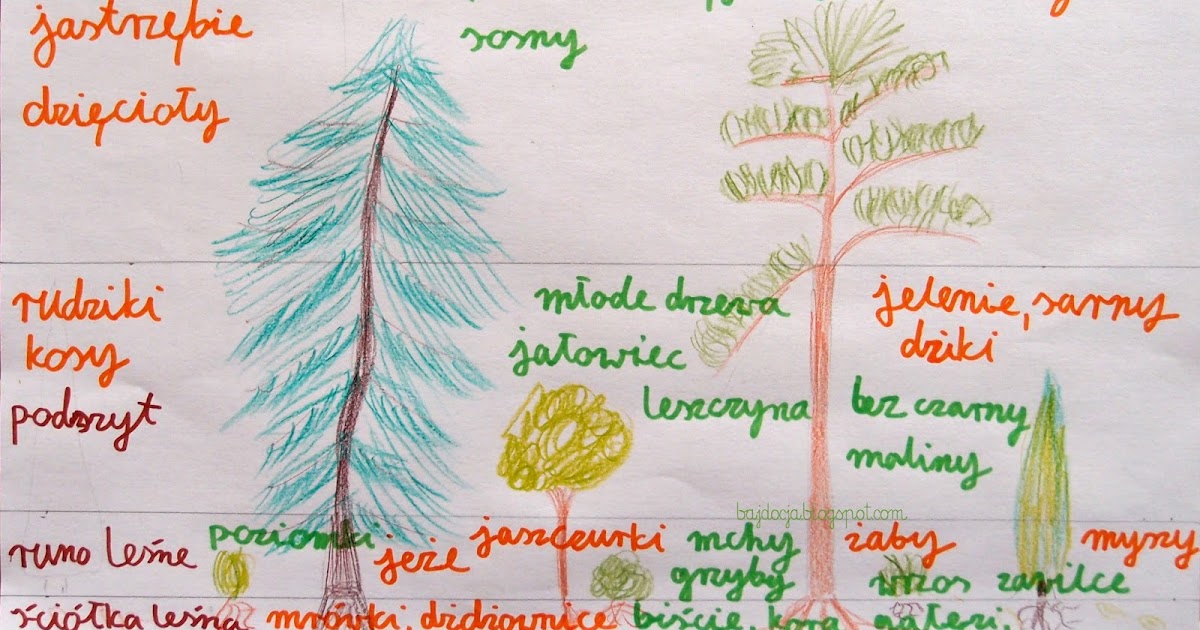 jastrzębie
sosny
dzięcioły
rudziki
kosy
podszyt
młode drzewa
jałowiec
leszczyna
jelenie, sarny
dziki
bez czarny
maliny
bajdocja.blogspot.com
runo leśne
poziomki
jeże
jaszczurki
mchy
grzyby
żaby
wrzos
zawilce
myszy
ściółka leśna
mrówki, dżdżownice
liście, kora